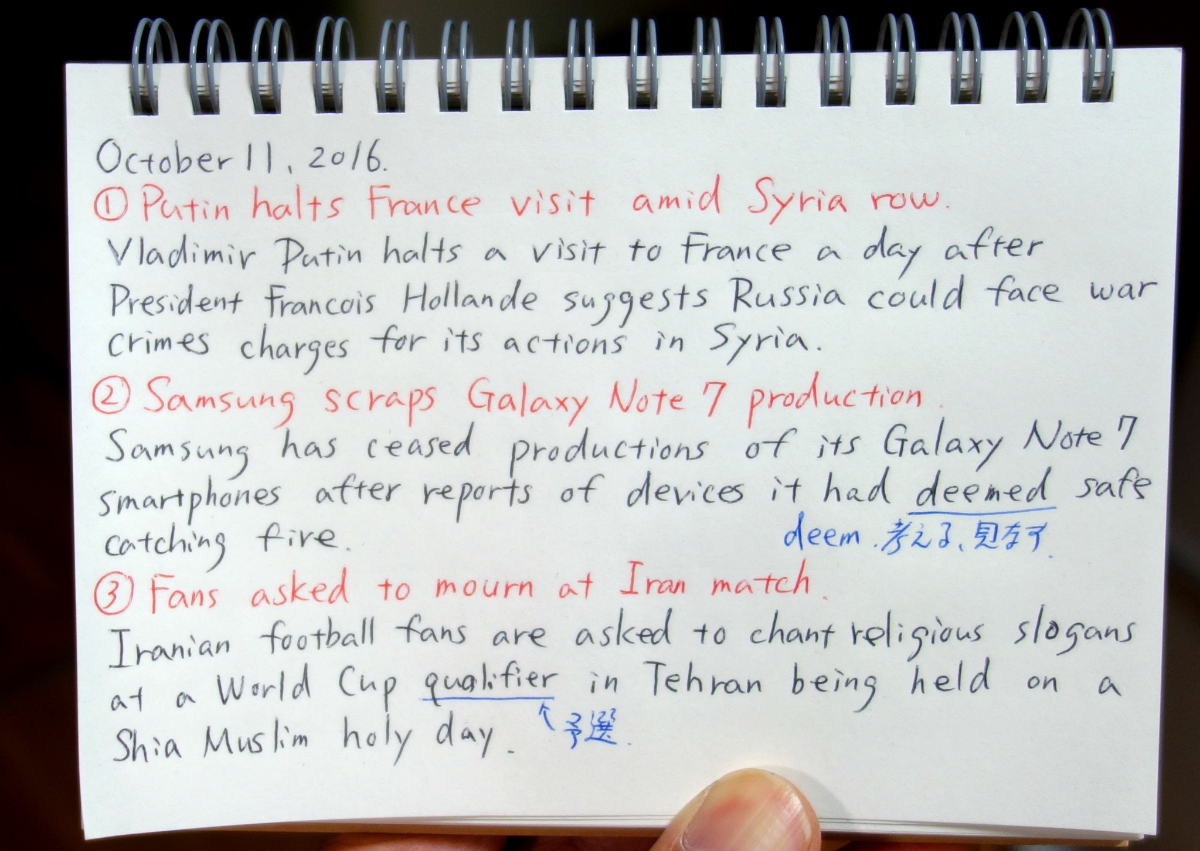 October 11, 2016.
① Putin halts France visit amid Syria row.
Vladimir Putin halts a visit to France a day after
President Francois Hollande suggests Russia could face war
crimes charges for its actions in Syria.
② Samsung scraps Galaxy Note 7 production.
Samsung has ceased productions of its Galaxy Note 7
smartphones after reports of devices it had deemed safe
catching fire.
deem. 考える、見なす.
③ Fans asked to mourn at Iran match.
Iranian football fans are asked to chant religious slogans
at a World Cup qualifier in Tehran being held on a
Shia Muslim holy day.
↖予選.